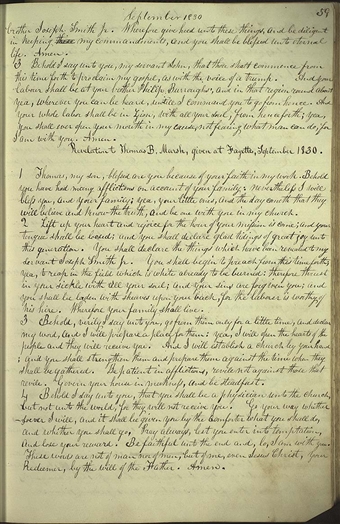 September 1830
39
brother Joseph Smith Jr. Wherefore give heed unto these things, and be diligent
in keeping these my commandments, and you shall be blessed unto eternal
life. Amen.
3 Behold I say unto you, my servant John, that thou shalt commence from
this time forth to proclaim my gospel, as with the voice of a trump. And your
labour shall be at your brother Philip Burroughs, and in that region round about
yea, wherever you can be heard, until I command you to go from hence. And
your whole labor shall be in Zion, with all your soul, from henceforth; yea,
you shall ever open your mouth in my cause, not fearing what man can do, for
I am with you. Amen.
Revelation to Thomas B. Marsh, given at Fayette, September 1830.
1 Thomas, my son, blessed are you because of your faith in my work. Behold
you have had many afflictions on account of your family: nevertheless I will
bless you, and your family; yea, your little ones, and the day cometh that they
will believe and know the truth, and be one with you in my church.
2 Lift up your heart and rejoice for the hour of your mission is come; and your
tongue shall be loosed; and you shall declare glad tidings of great joy unto
this generation. You shall declare the things which have been revealed to my
servant Joseph Smith Jr. You shall begin to preach from this time forth;
yea, to reap in the field which is white already to be burned: therefore thrust
in your sickle with all your soul; and your sins are forgiven you; and
you shall be laden with sheaves upon your back, for the laborer is worthy of
his hire. Wherefore your family shall live.
3 Behold, verily I say unto you, go from them only for a little time, and declare
my word, and I will prepare a place for them: yea, I will open the hearts of the
people and they will receive you. And I will establish a church by your hand
; and you shall strengthen them and prepare them against the time when they
shall be gathered. Be patient in afflictions, revile not against those that
revile. Govern your house in meekness, and be steadfast.
4 Behold I say unto you, that you shall be a physician unto the church,
but not unto the world, for they will not receive you. Go your way whither
soever I will, and it shall be given you by the Comforter what you shall do,
and whither you shall go. Pray always, lest you enter into temptation,
and lose your reward. Be faithful unto the end and, lo, I am with you.
These words are not of man nor of men, but of me, even Jesus Christ, your
Redeemer, by the will of the Father. Amen.